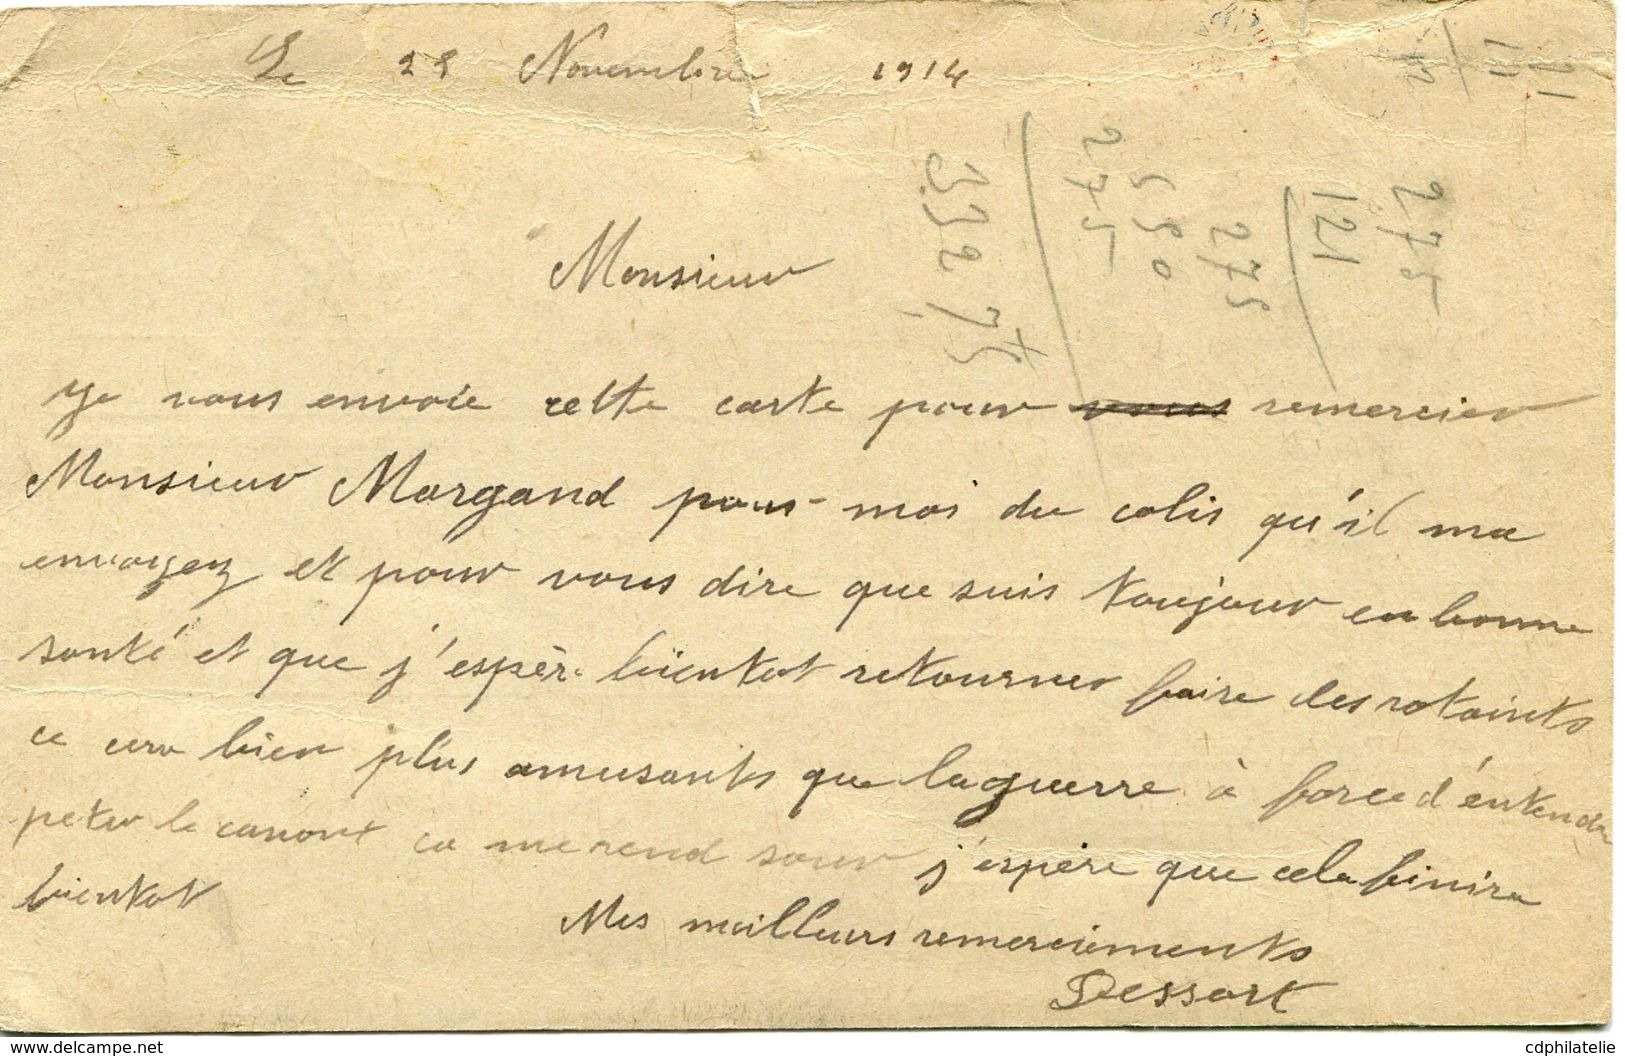 Le 25 Novembre 1914
Monsieur
Je vous envoie cette carte pour vous remercier
Monsieur Morgand pour moi du colis qu'il ma
envoyez et pour vous dire que suis toujour en bonne
santé et que j'espère bientot retourner faire des
ce cera bien plus amusants que la guerre à force d'entendre
peter le canont ca me rend sour j'espère que cela finira
bientot
Mes meilleurs remerciements
Dessart
275
121
275
550
275
332 75
www.delcampe.net
cdphilatelie